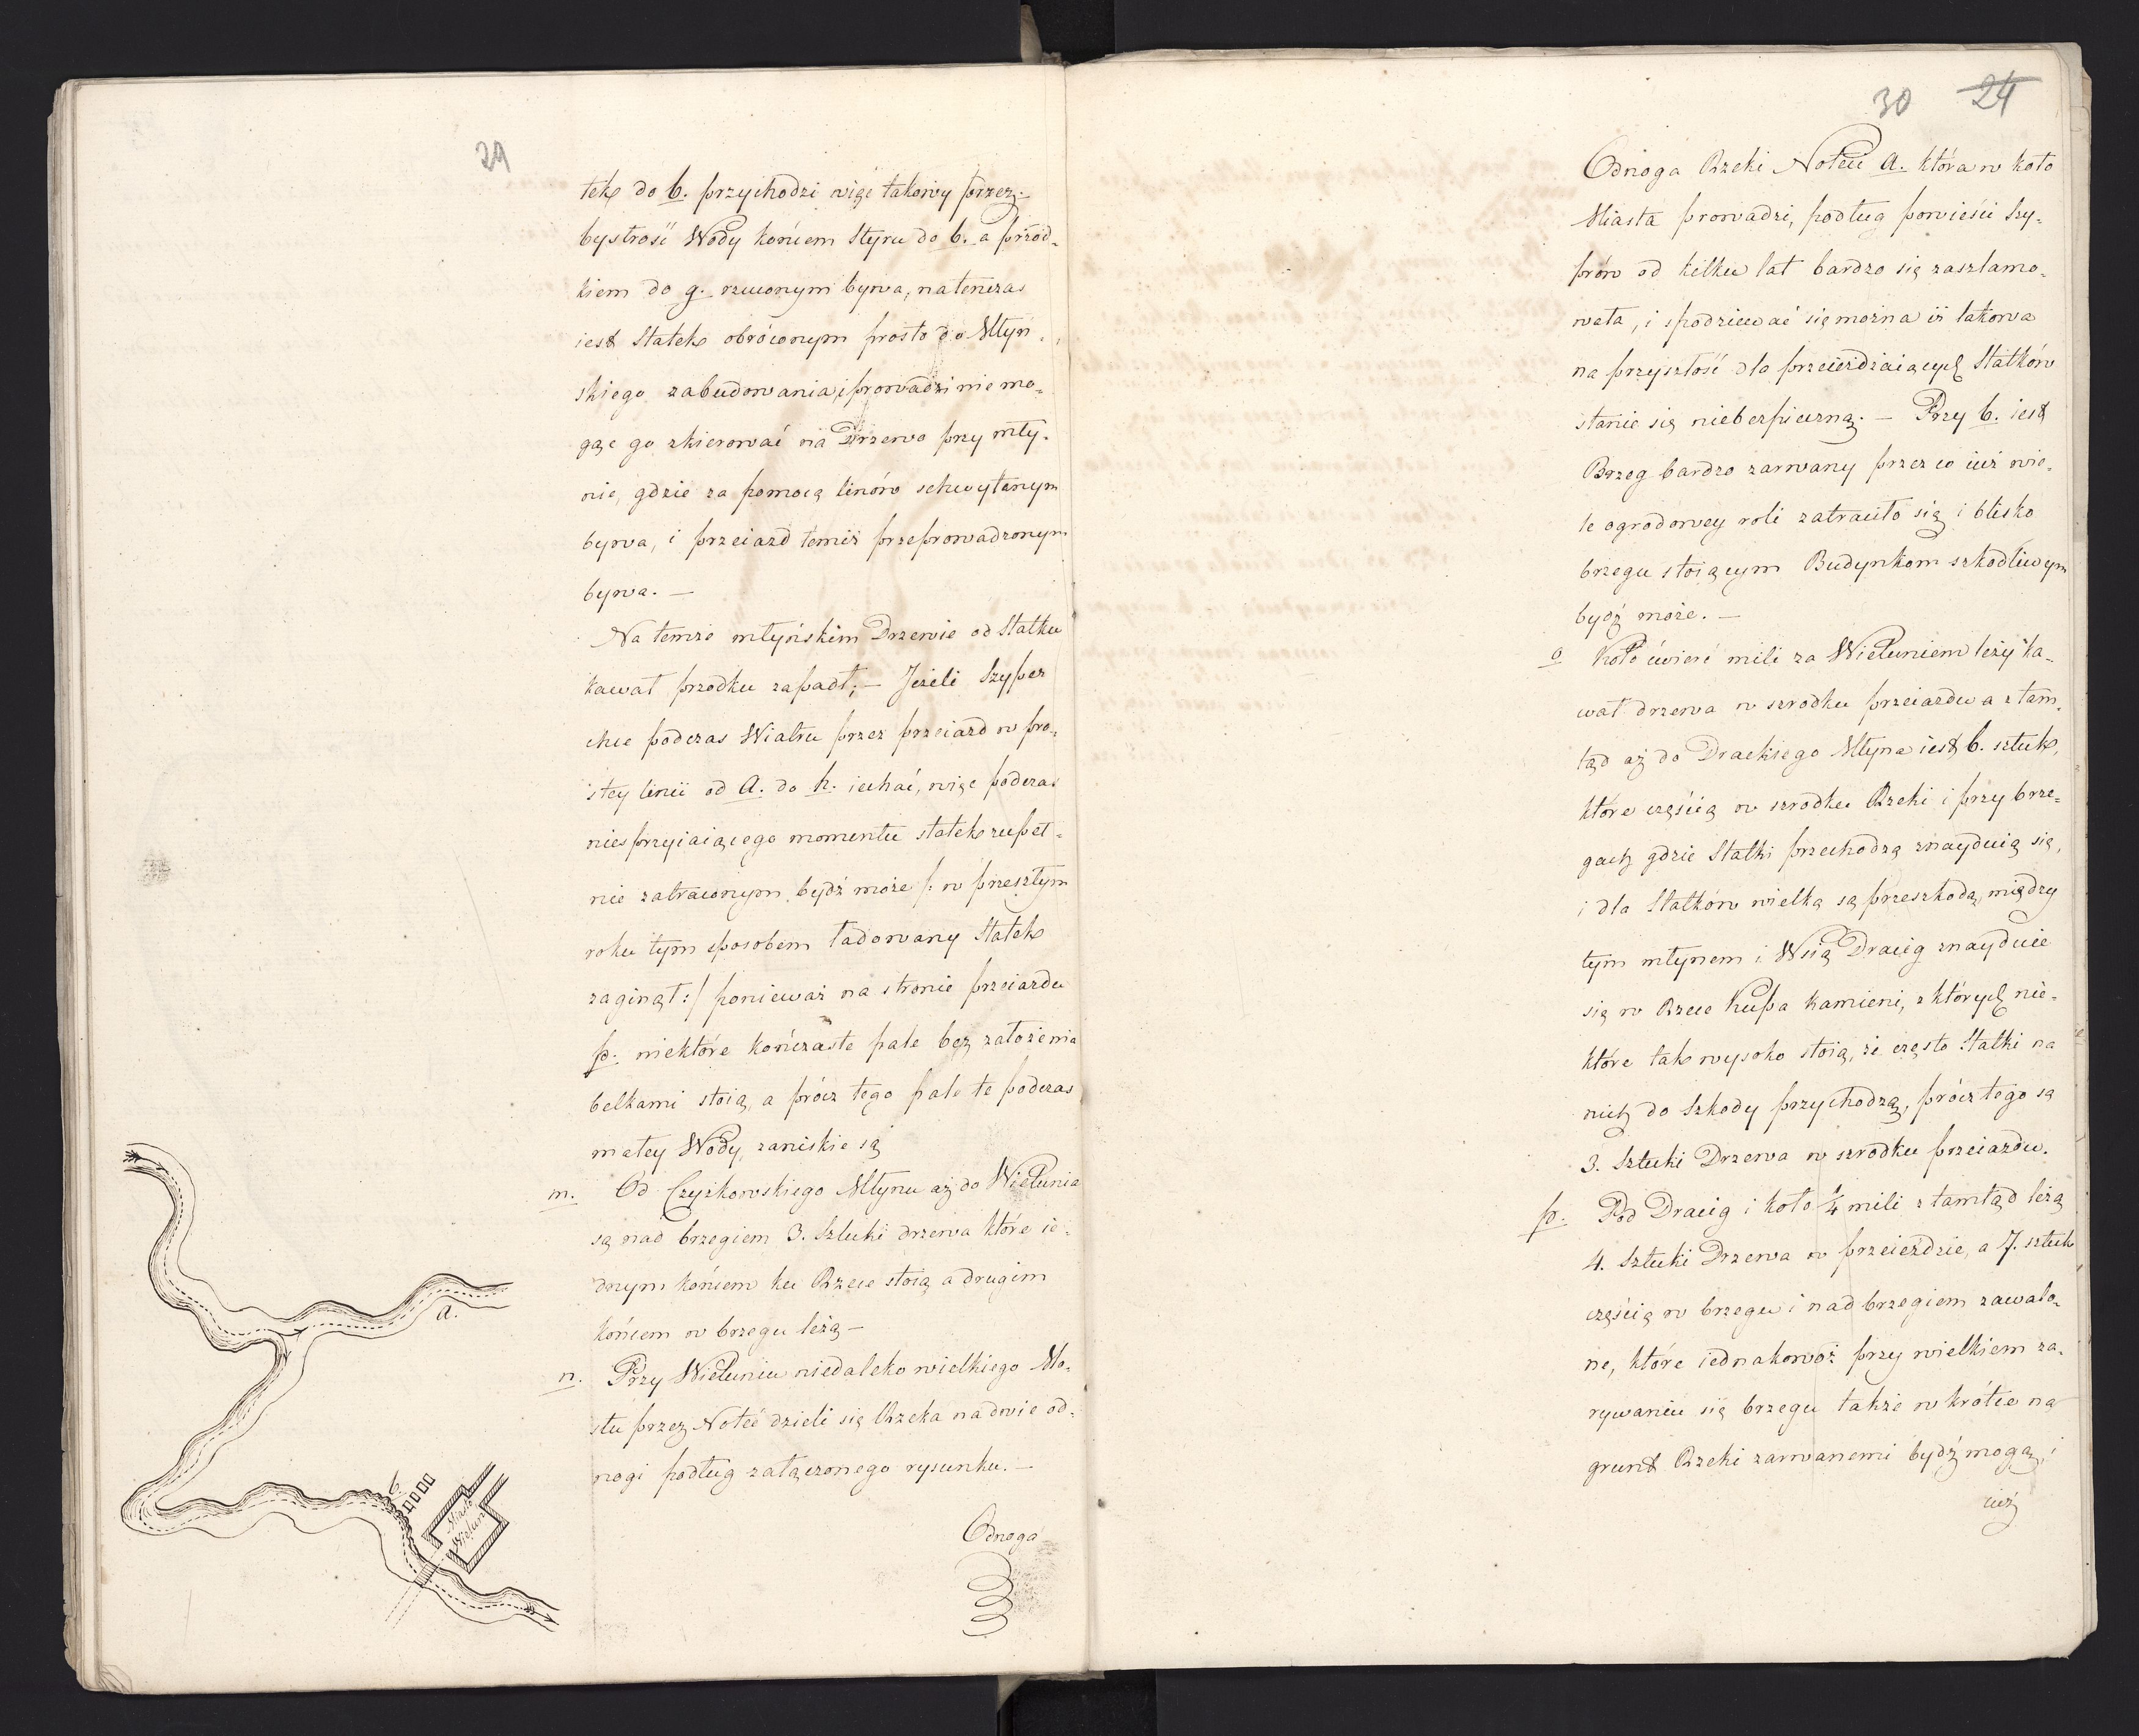 29
tek do b. przychodzi więc takowy przez
bystrość Wody końcem Styru do b. a przod-
kiem do g. rzuconym bywa, natenczas
iest Statek obróconym prosto do Młyn-
skiego zabudowania, i prowadzi nie mo-
gąc go zkierować na Drzewo przy mły-
nie, gdzie za pomocą linów schwytanym
bywa, i przeiazd temiż przeprowadzonym
bywa. —
Na temże młyńskim Drzewie od Statku
kawał przodku zapadł; — Jeżeli Szyper
chce podczas Wiatru przez przeiazd w pro-
stey linii od a. do h. iechać, więc podczas
niesprzyiaiącego momentu statek zupeł-
nie zatraconym bydź może /: w przeszłym
roku tym sposobem ładowany Statek
zaginął :/ ponieważ na stronie przeiazdu
p. niektóre kończaste pale bez założenia
belkami stoią, a prócz tego pale te podczas
małey Wody, zaniskie są
m. Od Czyżkowskiego Młynu aż do Wielunia
są nad brzegiem 3. Sztuki drzewa które ie-
dnym końcem ku Rzece stoią a drugim
końcem w brzegu leżą —
n. Przy Wieluniu niedaleko wielkiego Mo-
stu przez Noteć dzieli się Rzeka na dwie od-
nogi podług załączonego rysunku. —
Odnoga
a.
b.
Miasto
Wieluń
30 24
Odnoga Rzeki Noteci a. która w koło
Miasta prowadzi, podług powieści Szy-
prów od kilku lat bardzo się zaszlamo-
wała, i spodziewać się można iż takowa
na przyszłość dla przeieżdżaiących Statków
stanie się niebezpieczną. — Przy b. iest
Brzeg bardzo zarwany przez co iuż wie-
le ogrodowey roli zatraciło się i blisko
brzegu stoiącym Budynkom szkodliwym
bydź może. —
o Koło ćwierć mili za Wieluniem leży ka-
wał drzewa w szrodku przeiazdu a ztam-
tąd aż do Drackiego Młyna iest 6. sztuk,
które częścią w szrodku Rzeki i przy brze-
gach gdzie Statki przechodzą znayduią się,
i dla Statków wielką są przeszkodą, między
tym młynem i Wsią Dracig znayduie
się w Rzece Kupa kamieni, z których nie-
które tak wysoko stoią, że często Statki na
nich do Szkody przychodzą, prócz tego są
3. Sztuki Drzewa w szrodku przeiazdu.
p. Pod Dracig i koło 1/4 mili ztamtąd leżą
4. Sztuki Drzewa w przeieździe, a 7. sztuk
częścią w brzegu i nad brzegiem zawalo-
ne, które iednakowoż przy wielkiem za-
rywaniu się brzegu także w krótce na
grunt Rzeki zarwanemi bydź mogą, i
iuż